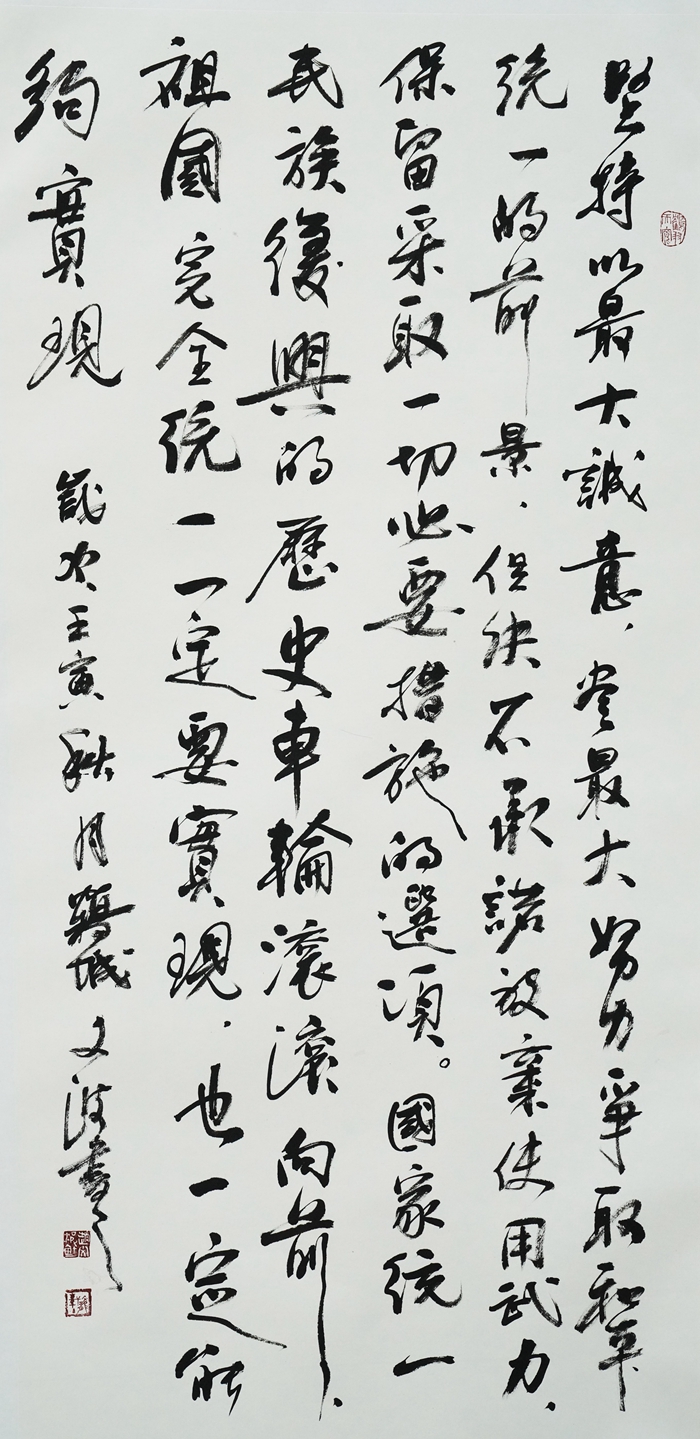 堅持以最大誠意，尽最大努力爭取和平
統一的前景，但決不承諾放棄使用武力，
保留采取一切必要措施的選項。國家統一
民族復興的歷史車輪滾滾向前，
祖國完全統一一定要實現，也一定能
夠實現
歲次壬寅秋月鷄城文波書